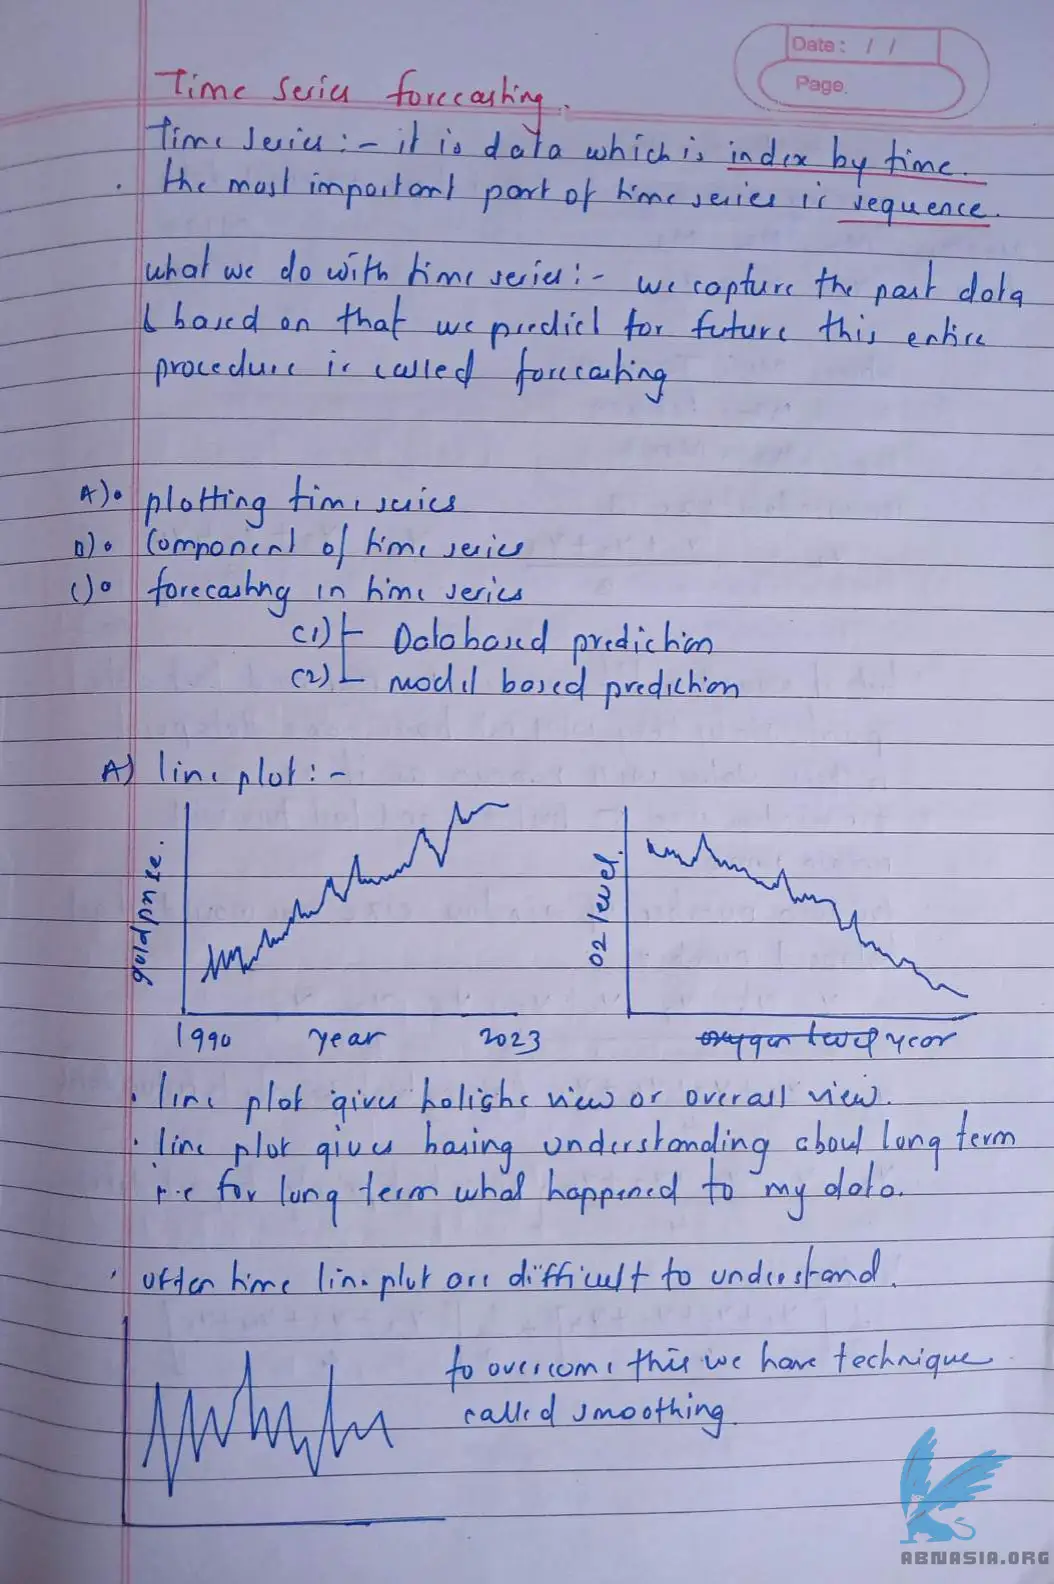 Date: / /
Page.
Time series forecasting.
Time series :- it is data which is index by time.
. the most important part of time series is sequence.
what we do with time series :- we capture the past data
& based on that we predict for future this entire
procedure is called forecasting
A). plotting time series
B). Component of time series
C). forecasting in time series
(C1) Data based prediction
(C2) model based prediction
A) line plot :-
gold prise.
1990 year 2023
O2 level.
oxygen level year
. line plot gives holistic view or overall view.
. line plot gives basing understanding about long term
i.e for long term what happened to my data.
. often time line plot are difficult to understand.
to overcome this we have technique
called smoothing.
ABNASIA.ORG